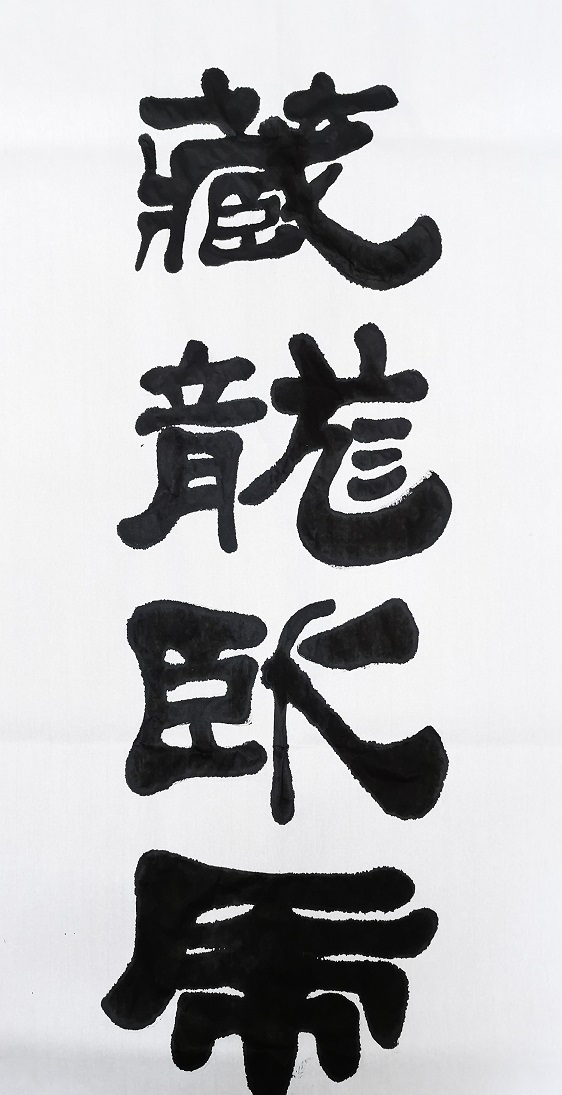 藏龍臥虎